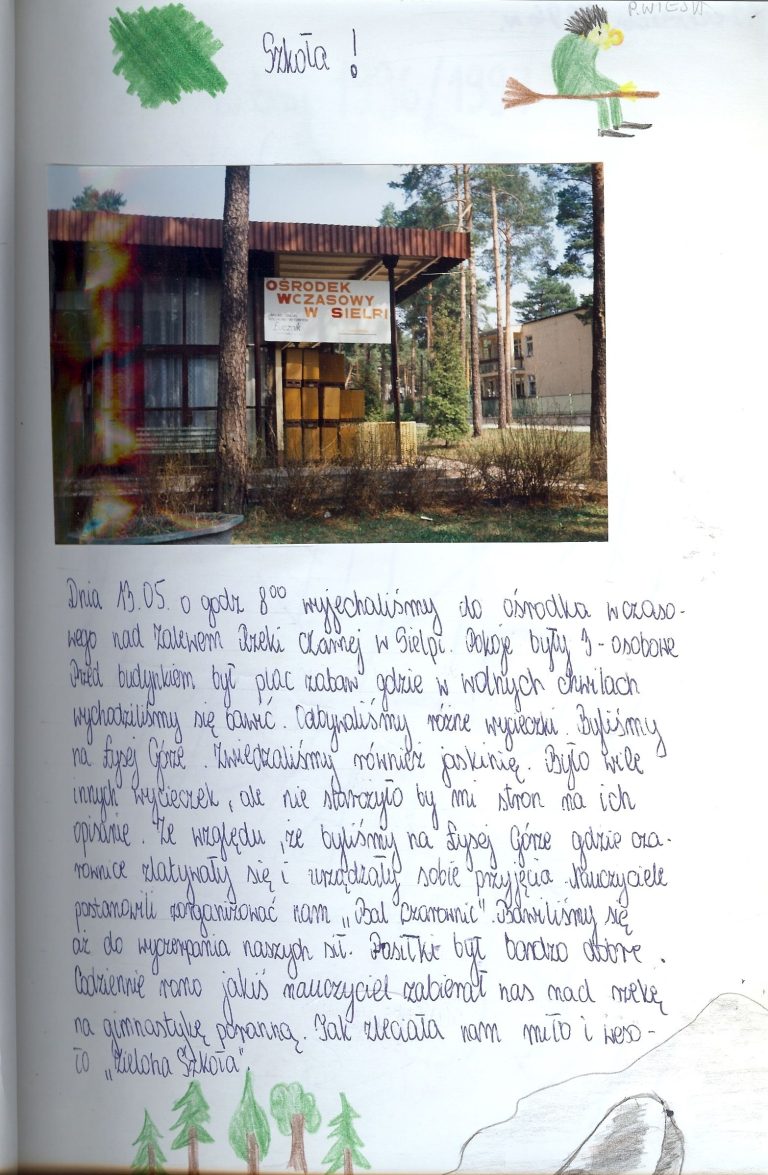 P. WIESIA
Szkoła !
OŚRODEK
WCZASOWY
W SIELPI
Łucznik
Dnia 13.05. o godz 8⁰⁰ wyjechaliśmy do ośrodka wczaso-
wego nad Zalewem Rzeki Czarnej w Sielpi. Pokoje były 3-osobowe
Przed budynkiem był plac zabaw gdzie w wolnych chwilach
wychodziliśmy się bawić. Odbywaliśmy różne wycieczki. Byliśmy
na Łysej Górze. Zwiedzaliśmy również jaskinię. Było wile
innych wycieczek, ale nie starczyło by mi stron na ich
opisanie. Ze względu, że byliśmy na Łysej Górze gdzie cza-
rownice zlatywały się i urządzały sobie przyjęcia Nauczyciele
postanowili zorganizować nam „Bal Czarownic". Bawiliśmy się
aż do wyczerpania naszych sił. Posiłki był bardzo dobre.
Codziennie rano jakiś nauczyciel zabierał nas nad rzekę
na gimnastykę poranną. Tak zleciała nam miło i weso-
ło „Zielona Szkoła".